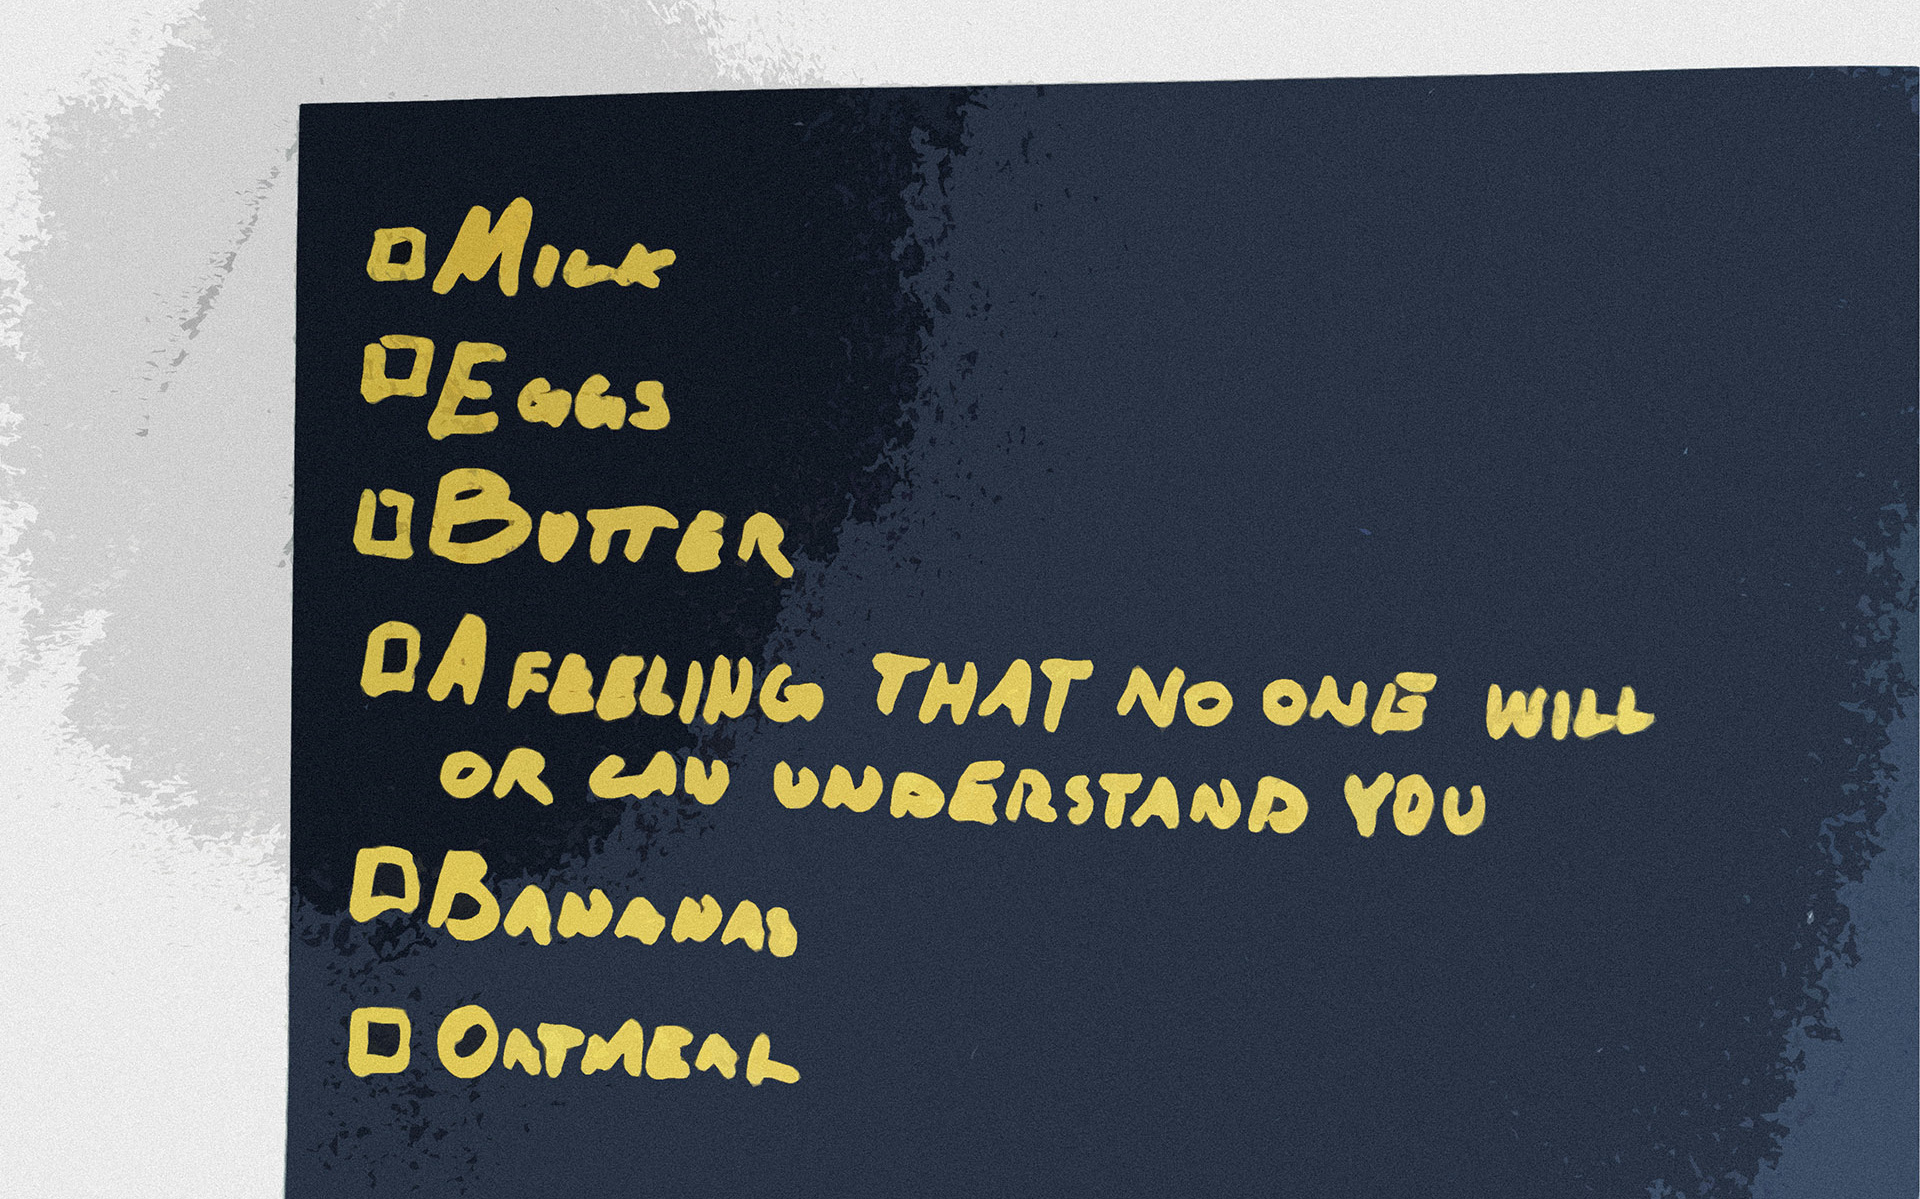 Milk
Eggs
Butter
A feeling that no one will
or can understand you
Bananas
Oatmeal